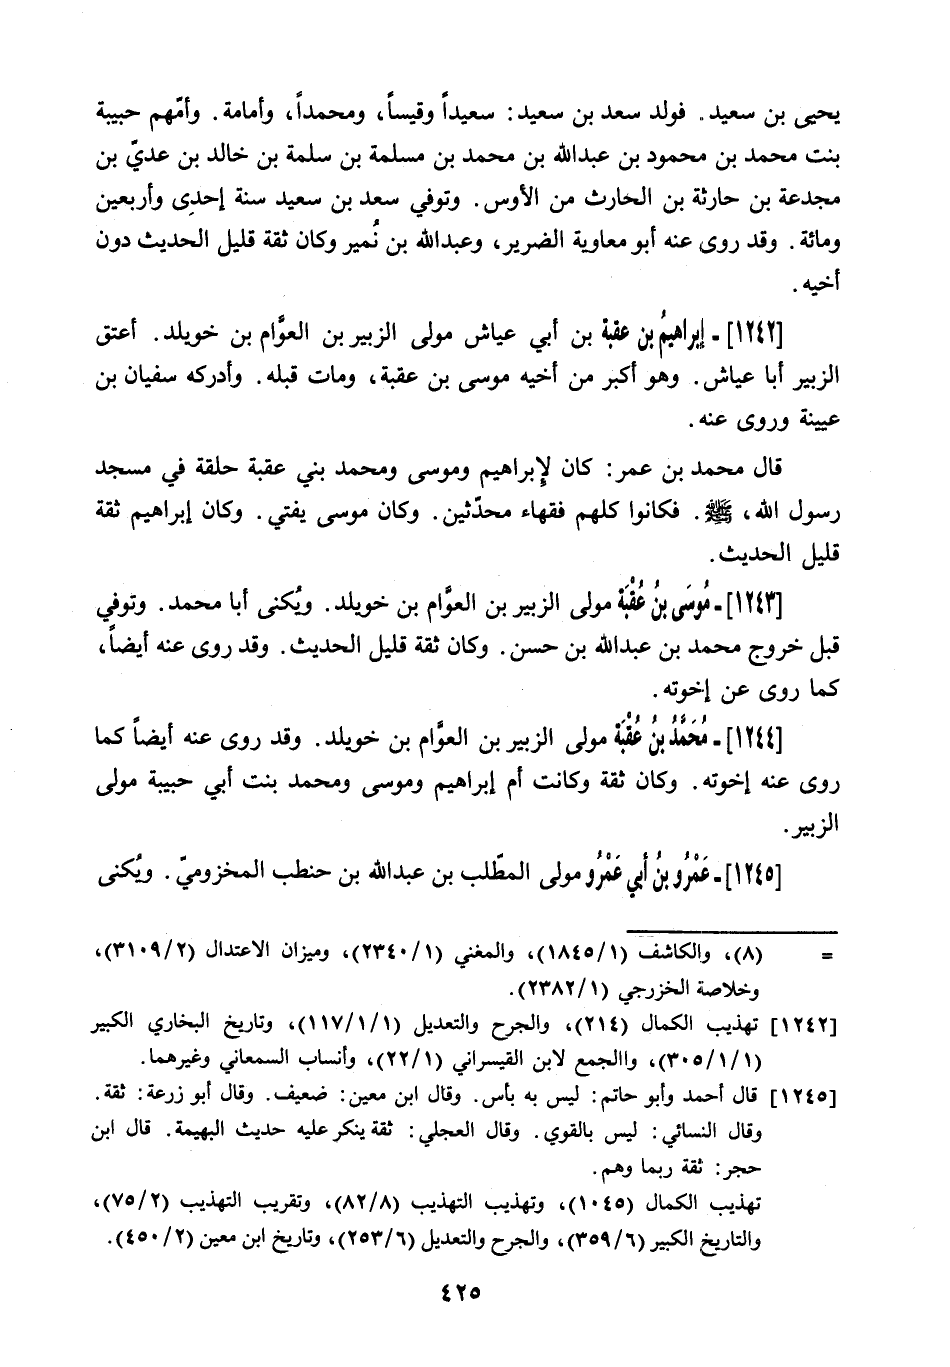 يحيى بن سعيد. فولد سعد بن سعيد: سعيداً وقيساً، ومحمداً، وأمامة. وأمّهم حبيبة
بنت محمد بن محمود بن عبدالله بن محمد بن مسلمة بن سلمة بن خالد بن عديّ بن
مجدعة بن حارثة بن الحارث من الأوس. وتوفي سعد بن سعيد سنة إحدى وأربعين
ومائة. وقد روى عنه أبو معاوية الضرير، وعبدالله بن نُمير وكان ثقة قليل الحديث دون
أخيه.
[١٢٤٢] ـ إبراهيمُ بن عقبة بن أبي عياش مولى الزبير بن العوَّام بن خويلد. أعتق
الزبير أبا عياش. وهو أكبر من أخيه موسى بن عقبة، ومات قبله. وأدركه سفيان بن
عيينة وروى عنه.
قال محمد بن عمر: كان لإبراهيم وموسى ومحمد بني عقبة حلقة في مسجد
رسول الله، ﷺ. فكانوا كلهم فقهاء محدّثين. وكان موسى يفتي. وكان إبراهيم ثقة
قليل الحديث.
[١٢٤٣] ـ مُوسَى بنُ عُقْبَة مولى الزبير بن العوَّام بن خويلد. ويُكنى أبا محمد. وتوفي
قبل خروج محمد بن عبدالله بن حسن. وكان ثقة قليل الحديث. وقد روى عنه أيضاً،
كما روى عن إخوته.
[١٢٤٤] ـ مُحَمَّدُ بنُ عُقْبَة مولى الزبير بن العوَّام بن خويلد. وقد روى عنه أيضاً كما
روى عنه إخوته. وكان ثقة وكانت أم إبراهيم وموسى ومحمد بنت أبي حبيبة مولى
الزبير.
[١٢٤٥] ـ عَمْرُو بنُ أَبي عَمْرُو مولى المطّلب بن عبدالله بن حنطب المخزوميّ. ويُكنى
= (٨)، والكاشف (١/١٨٤٥)، والمغني (١/٢٣٤٠)، وميزان الاعتدال (٢/٣١٠٩)،
وخلاصة الخزرجي (١/٢٣٨٢).
[١٢٤٢] تهذيب الكمال (٢١٤)، والجرح والتعديل (١/١/١١٧)، وتاريخ البخاري الكبير
(١/١/٣٠٥)، واالجمع لابن القيسراني (١/٢٢)، وأنساب السمعاني وغيرهما.
[١٢٤٥] قال أحمد وأبو حاتم: ليس به بأس. وقال ابن معين: ضعيف. وقال أبو زرعة: ثقة.
وقال النسائي: ليس بالقوي. وقال العجلي: ثقة ينكر عليه حديث البهيمة. قال ابن
حجر: ثقة ربما وهم.
تهذيب الكمال (١٠٤٥)، وتهذيب التهذيب (٨/٨٢)، وتقريب التهذيب (٢/٧٥)،
والتاريخ الكبير (٦/٣٥٩)، والجرح والتعديل (٦/٢٥٣)، وتاريخ ابن معين (٢/٤٥٠).
٤٢٥